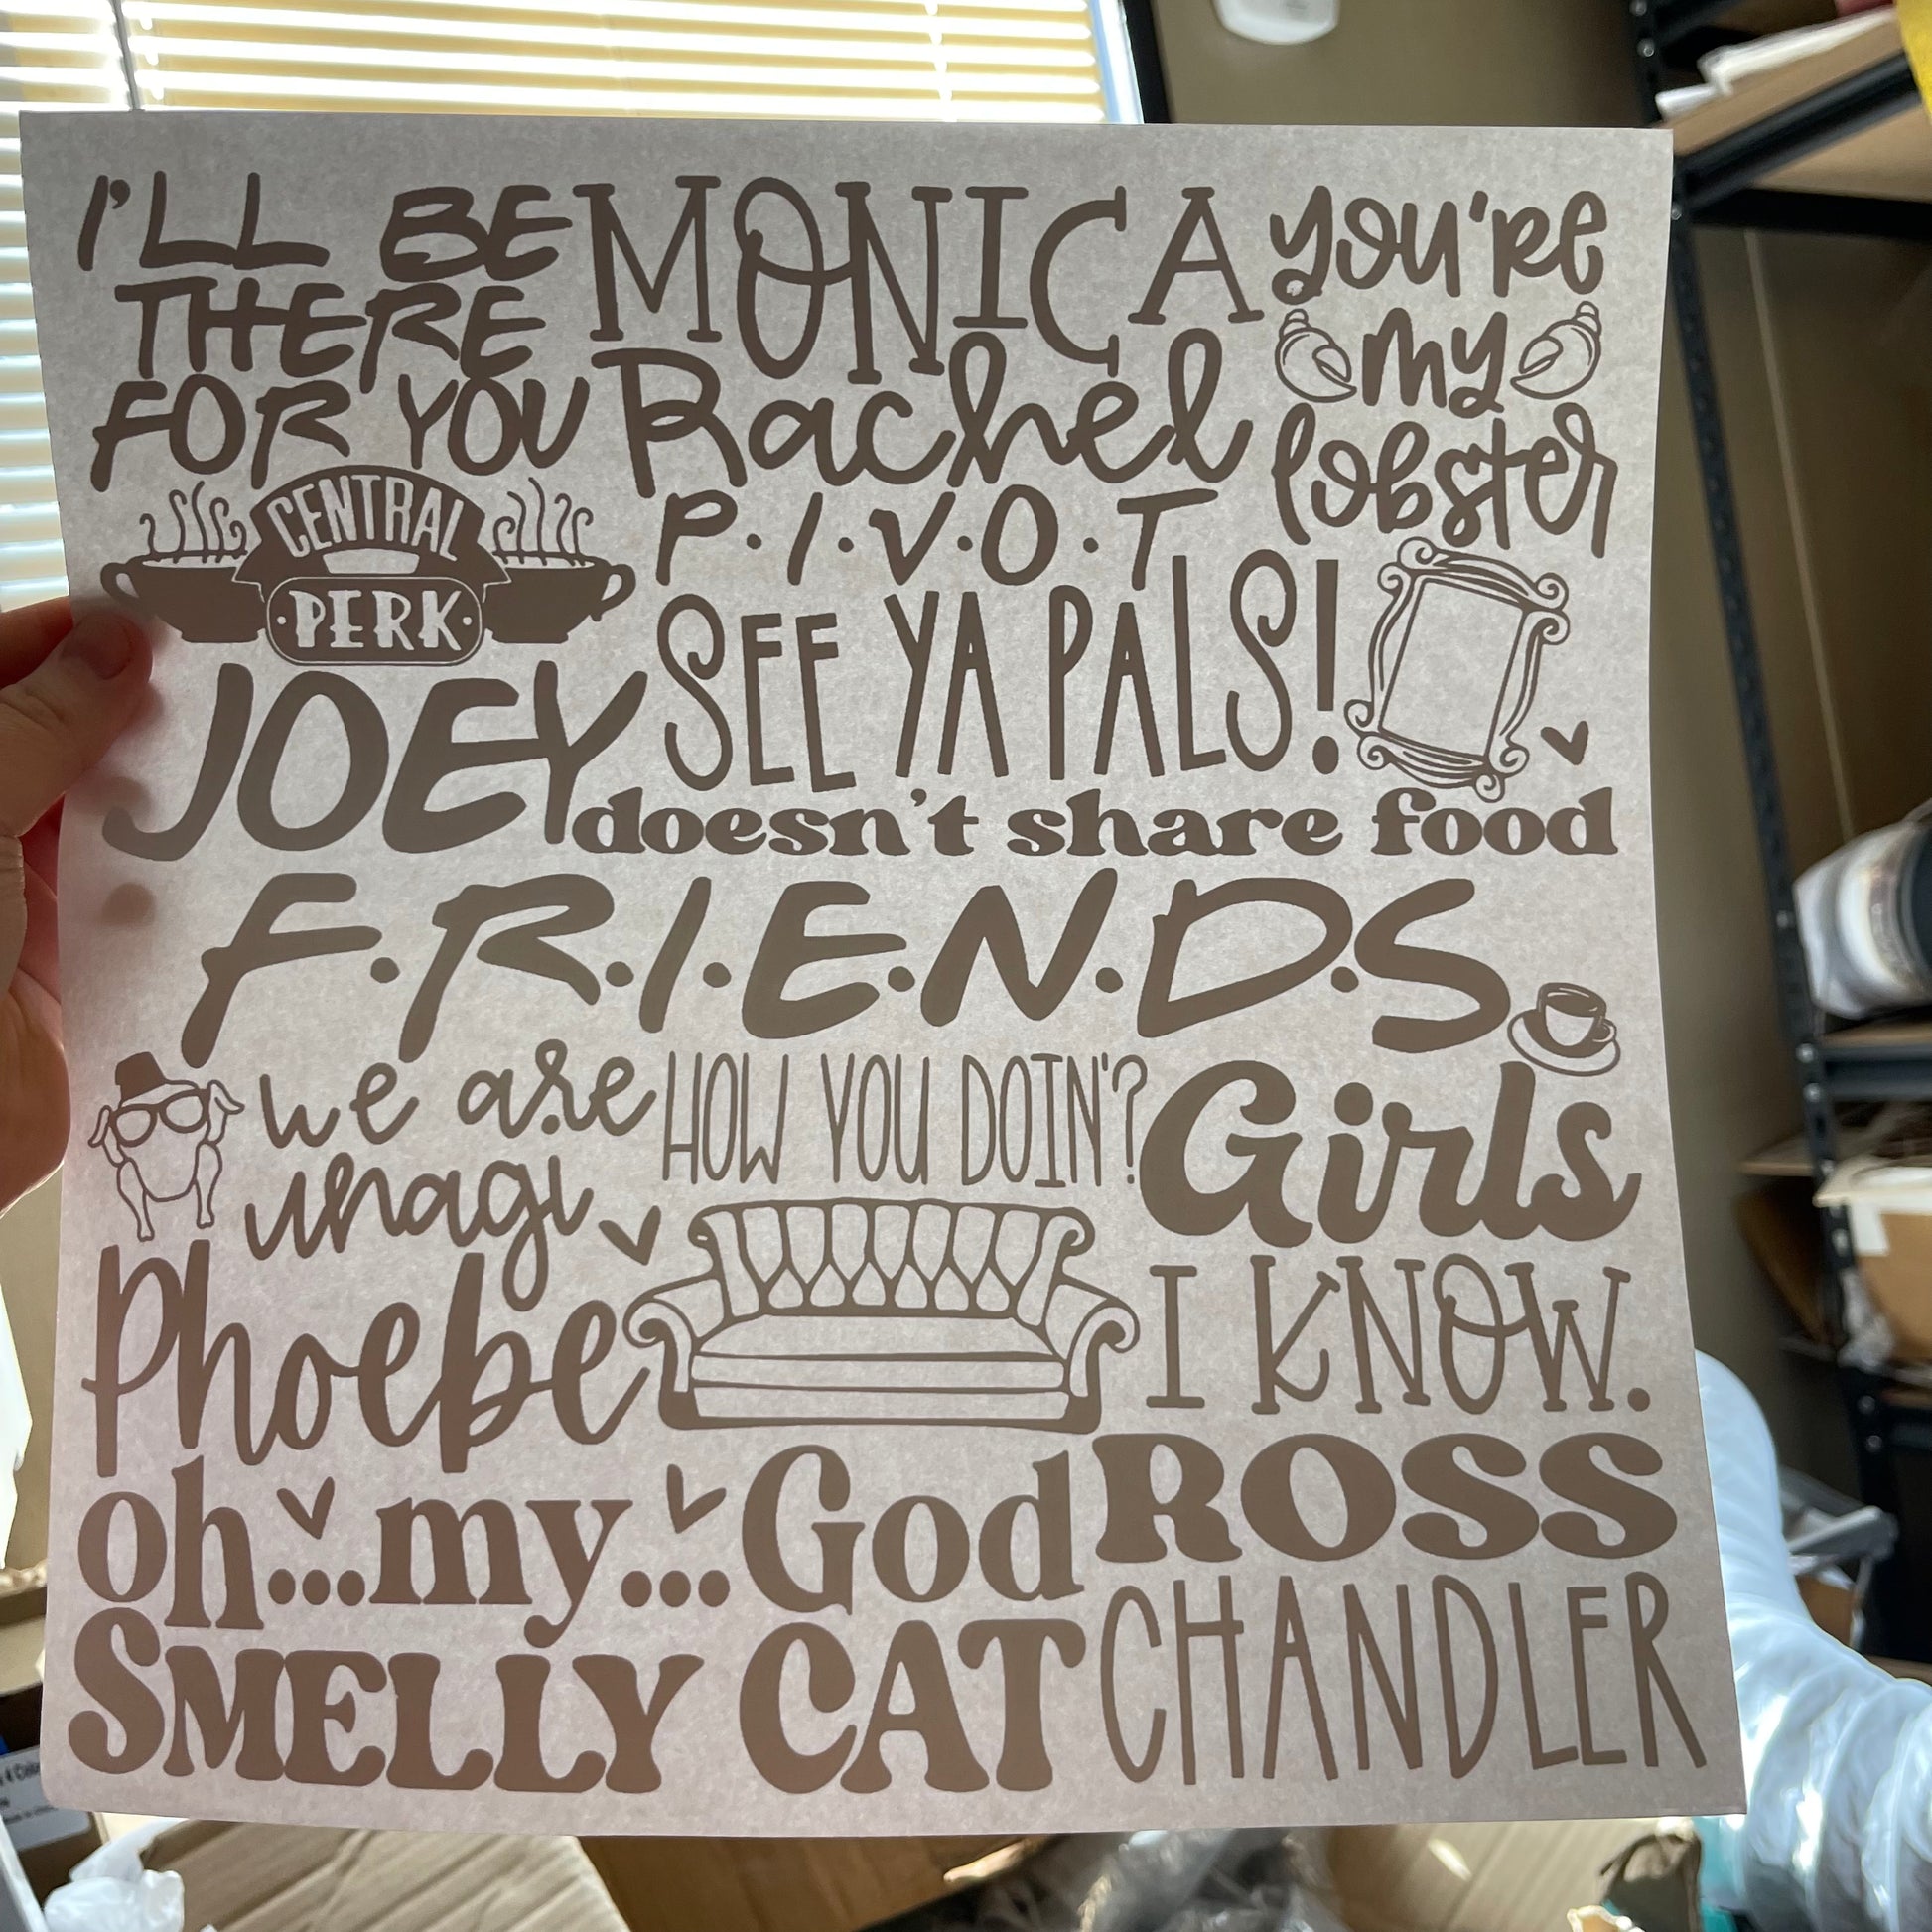 I'LL BE
THERE
FOR YOU
MONICA
Rachel
you're
my
lobster
CENTRAL
PERK
P·I·V·O·T
SEE YA PALS!
JOEY
doesn't share food
F·R·I·E·N·D·S
we are
unagi
HOW YOU DOIN'?
Girls
Phoebe
I KNOW.
oh...my...God
ROSS
SMELLY CAT
CHANDLER